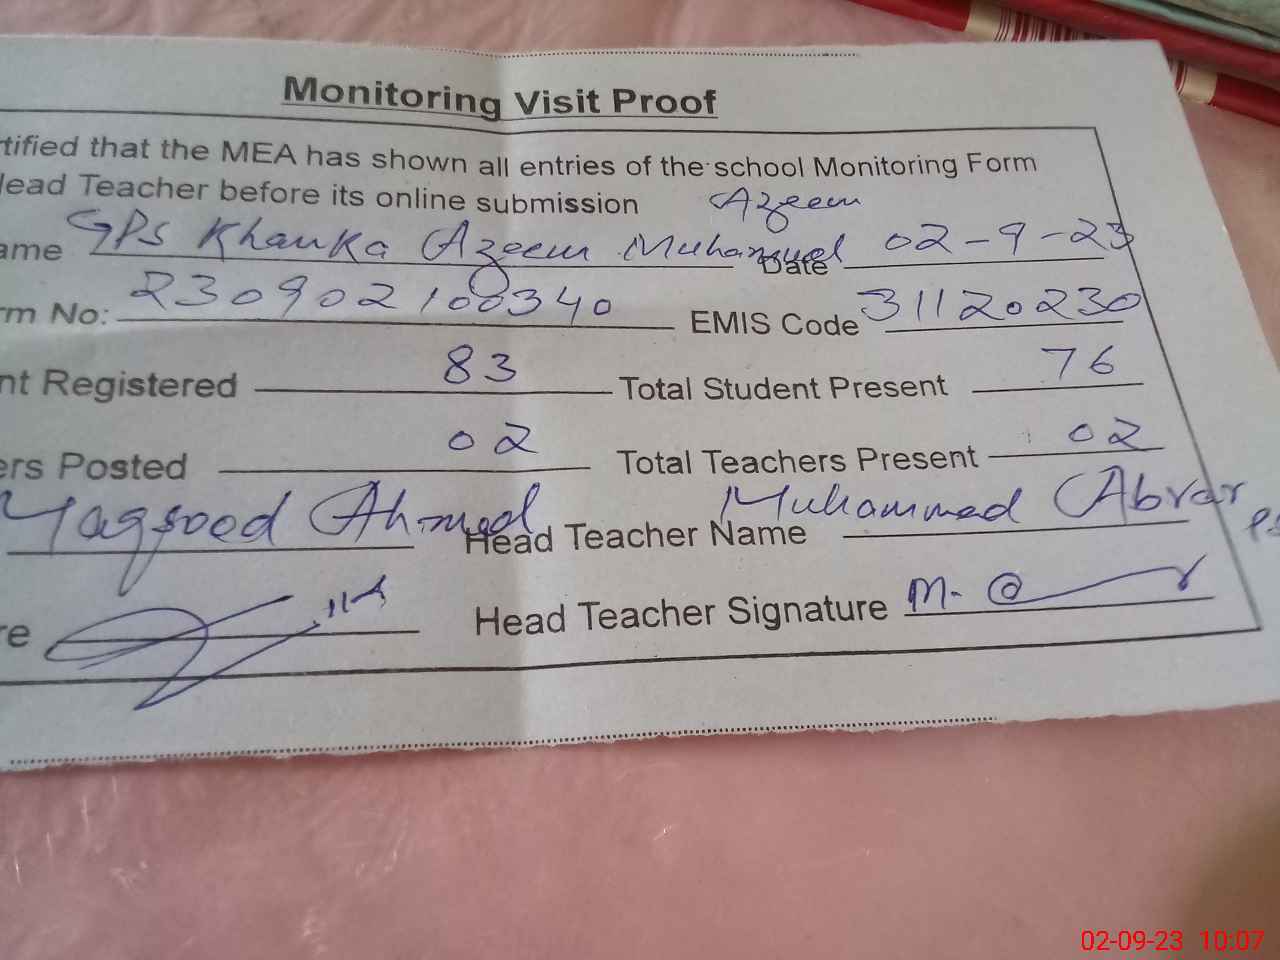 Monitoring Visit Proof
tified that the MEA has shown all entries of the school Monitoring Form
lead Teacher before its online submission Azeem
ame GPS Khanka Azeem Muhammad Date 02-9-23
rm No: 230902100340 EMIS Code 31120230
nt Registered 83 Total Student Present 76
ers Posted 02 Total Teachers Present 02
Maqsood Ahmed Head Teacher Name Muhammad Abrar
re Head Teacher Signature
02-09-23 10:07